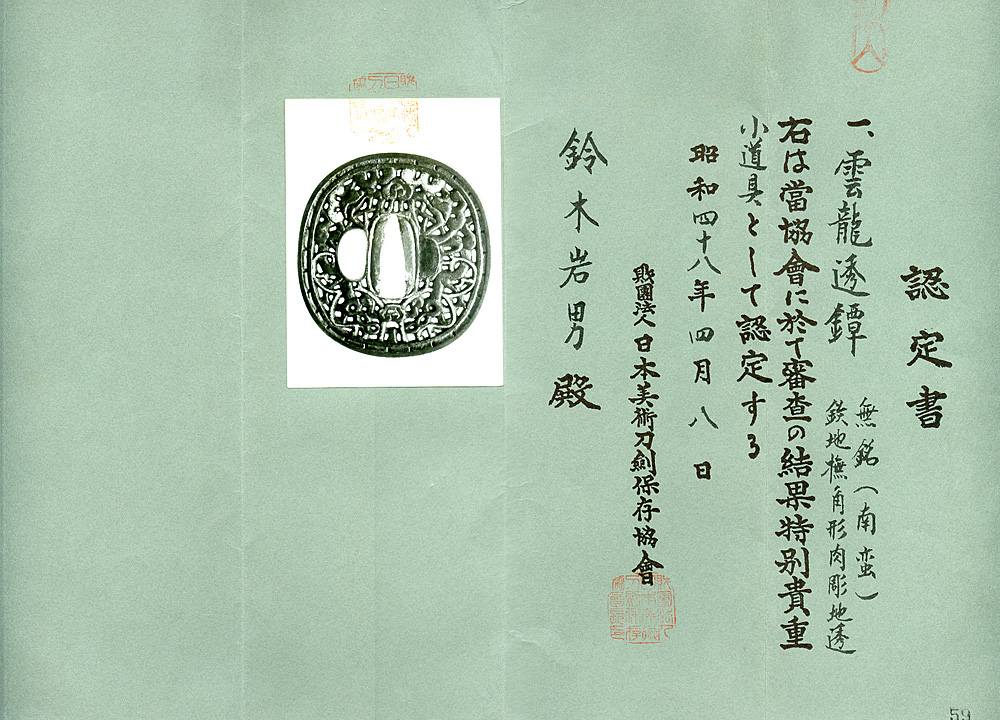 認定書
一、雲龍透鐔
無銘(南蛮)
鉄地撫角形肉彫地透
右は當協會に於て審査の結果特別貴重
小道具として認定する
昭和四十八年四月八日
財團法人日本美術刀劍保存協會
鈴木岩男殿
59